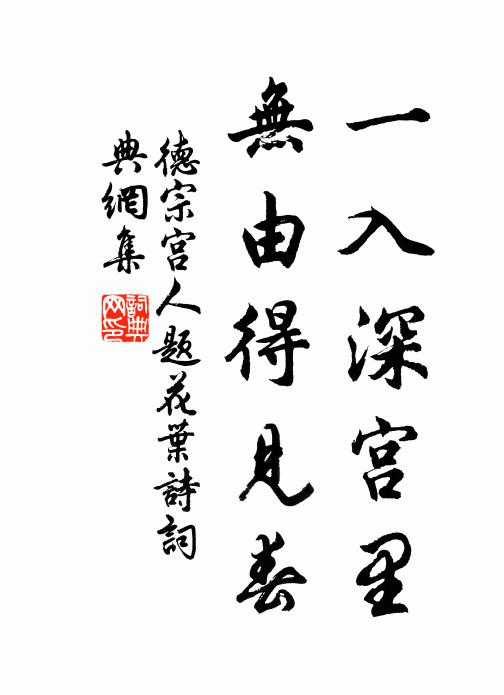 一入深宫里
無由得見春
德宗宫人題花葉詩詞
典網集
詞典網印